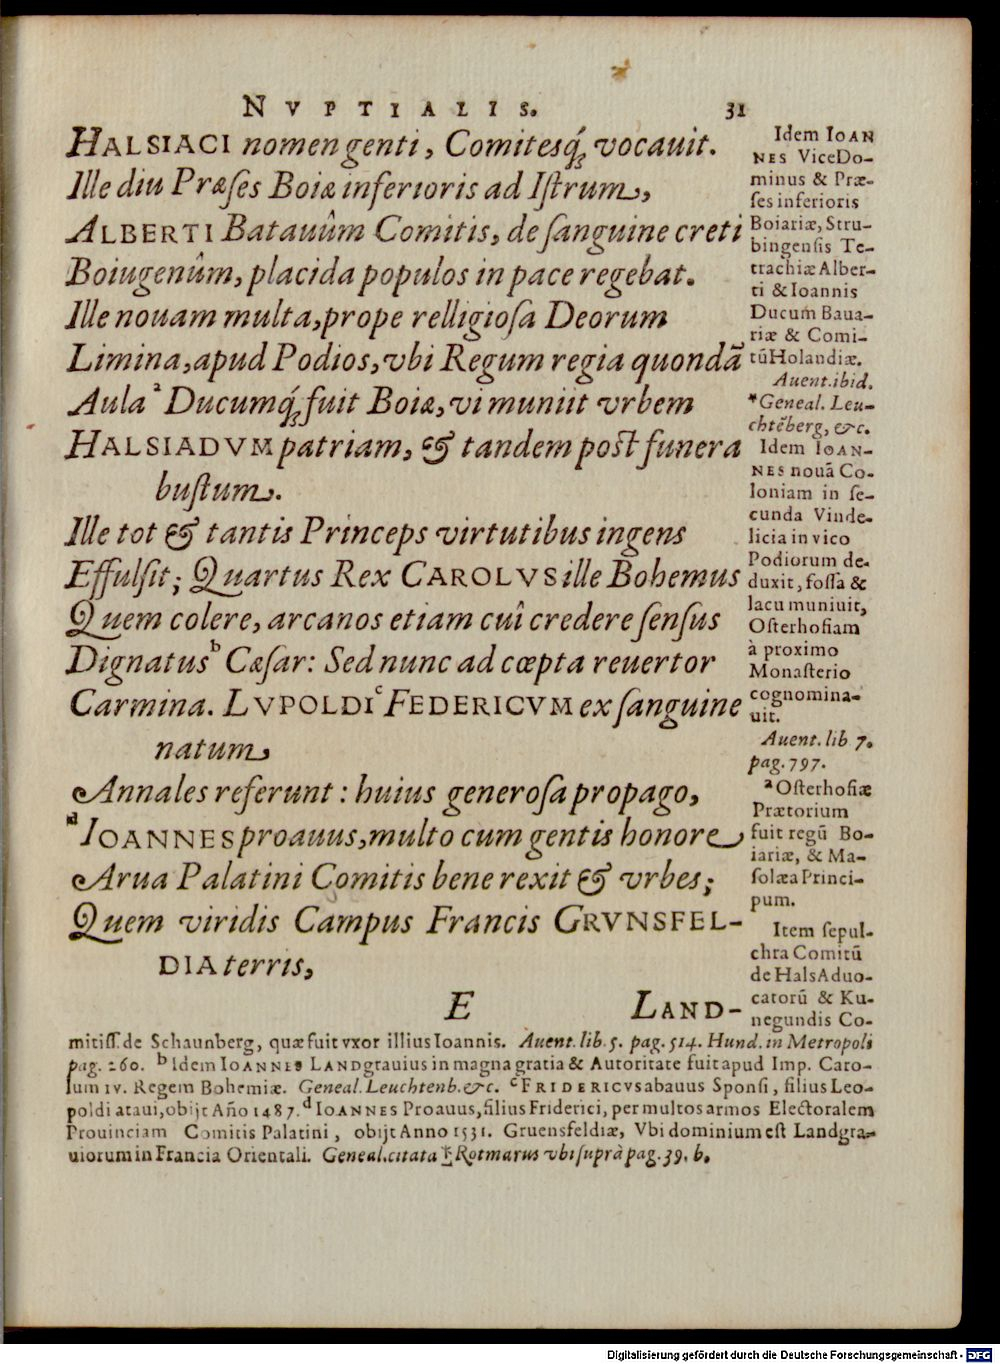 NVPTIALIS. 31
HALSIACI nomen genti, Comitesq́; vocauit.
Ille diu Præses Boiæ inferioris ad Istrum,
ALBERTI Batauûm Comitis, de sanguine creti
Boiugenûm, placida populos in pace regebat.
Ille nouam multa, prope relligiosa Deorum
Limina, apud Podios, vbi Regum regia quondã
Aula ᵃ Ducumq́; fuit Boiæ, vi muniit vrbem
HALSIADVM patriam, & tandem post funera
bustum.
Ille tot & tantis Princeps virtutibus ingens
Effulsit; Quartus Rex CAROLVS ille Bohemus
Quem colere, arcanos etiam cuî credere sensus
Dignatus ᵇ Cæsar: Sed nunc ad cœpta reuertor
Carmina. LVPOLDI ᶜ FEDERICVM ex sanguine
natum
Annales referunt: huius generosa propago,
ᵈ IOANNES proauus, multo cum gentis honore
Arua Palatini Comitis bene rexit & vrbes;
Quem viridis Campus Francis GRVNSFEL-
DIA terris,
E LAND-
Idem IOAN
NES ViceDo-
minus & Præ-
ses inferioris
Boiariæ, Stru-
bingensis Te-
trachiæ Alber-
ti & Ioannis
Ducum Baua-
riæ & Comi-
tũ Holandiæ.
Auent. ibid.
*Geneal. Leu-
chtẽberg, &c.
Idem IOAN-
NES nouã Co-
loniam in se-
cunda Vinde-
licia in vico
Podiorum de-
duxit, fossa &
lacu muniuit,
Osterhofiam
à proximo
Monasterio
cognomina-
uit.
Auent. lib 7.
pag. 797.
ᵃ Osterhofiæ
Prætorium
fuit regũ Bo-
iariæ, & Ma-
solæa Princi-
pum.
Item sepul-
chra Comitũ
de Hals Aduo-
catorũ & Ku-
negundis Co-
mitiss. de Schaunberg, quæ fuit vxor illius Ioannis. Auent. lib. 5. pag. 514. Hund. in Metropoli
pag. 260. ᵇ Idem IOANNES LANDgrauius in magna gratia & Autoritate fuit apud Imp. Caro-
lum IV. Regem Bohemiæ. Geneal. Leuchtenb. &c. ᶜ FRIDERICVS abauus Sponsi, filius Leo-
poldi ataui, obijt Año 1487. ᵈ IOANNES Proauus, filius Friderici, per multos armos Electoralem
Prouinciam Comitis Palatini, obijt Anno 1531. Gruensfeldiæ, Vbi dominium est Landgra-
uiorum in Francia Orientali. Geneal. citata & Rotmarus vbi suprà pag. 39. b.
Digitalisierung gefördert durch die Deutsche Forschungsgemeinschaft - DFG